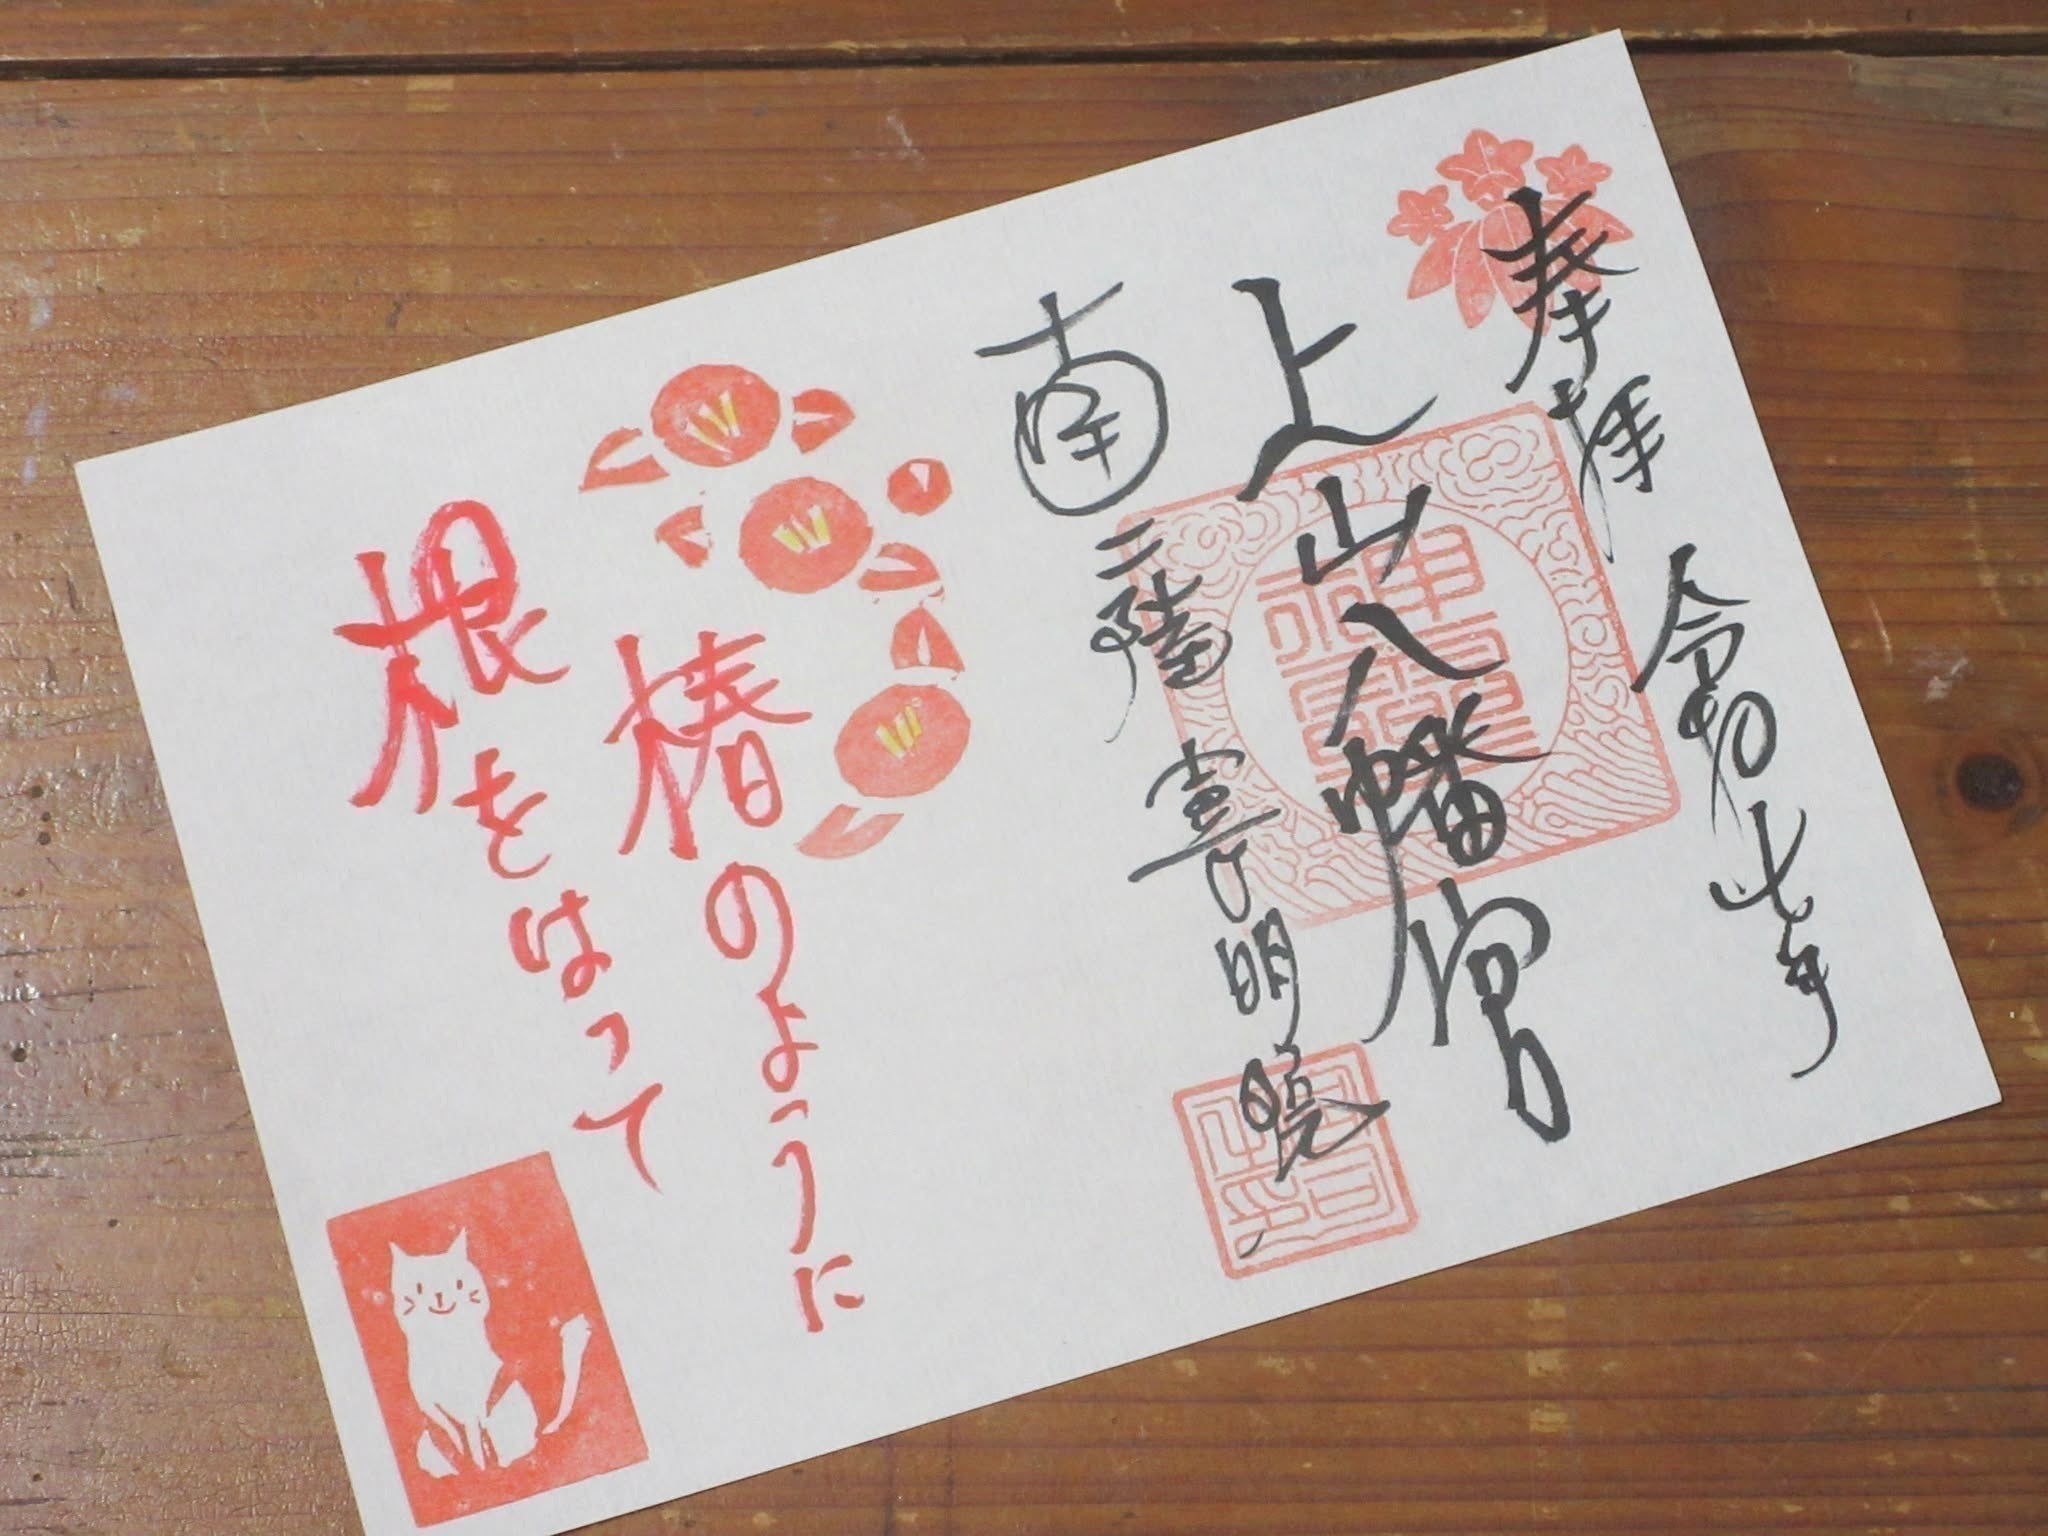 奉拝
令和七年
上山八幡宮
南三陸
椿のように
根をはって